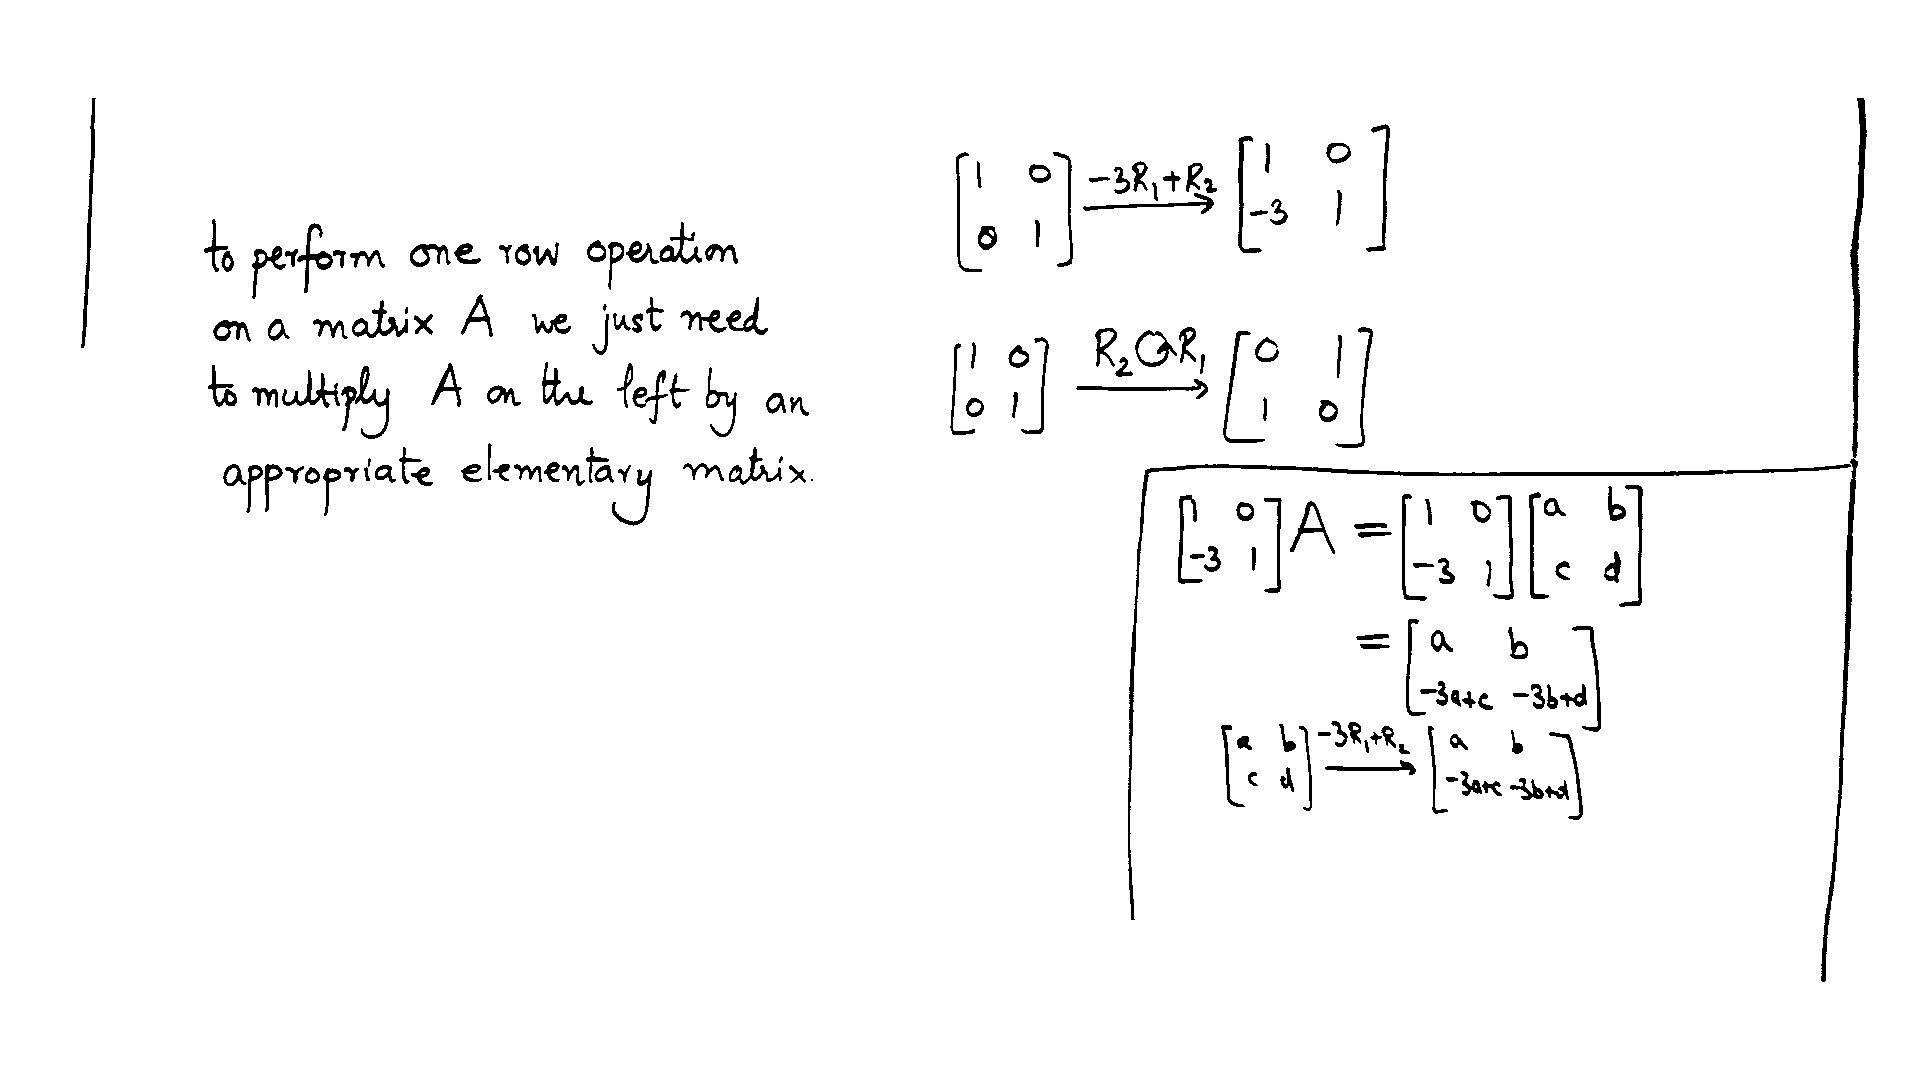 to perform one row operation
on a matrix A we just need
to multiply A on the left by an
appropriate elementary matrix.
[1 0; 0 1] —(-3R₁+R₂)→ [1 0; -3 1]
[1 0; 0 1] —(R₂ ↺ R₁)→ [0 1; 1 0]
[1 0; -3 1] A = [1 0; -3 1] [a b; c d]
= [a b; -3a+c -3b+d]
[a b; c d] —(-3R₁+R₂)→ [a b; -3a+c -3b+d]